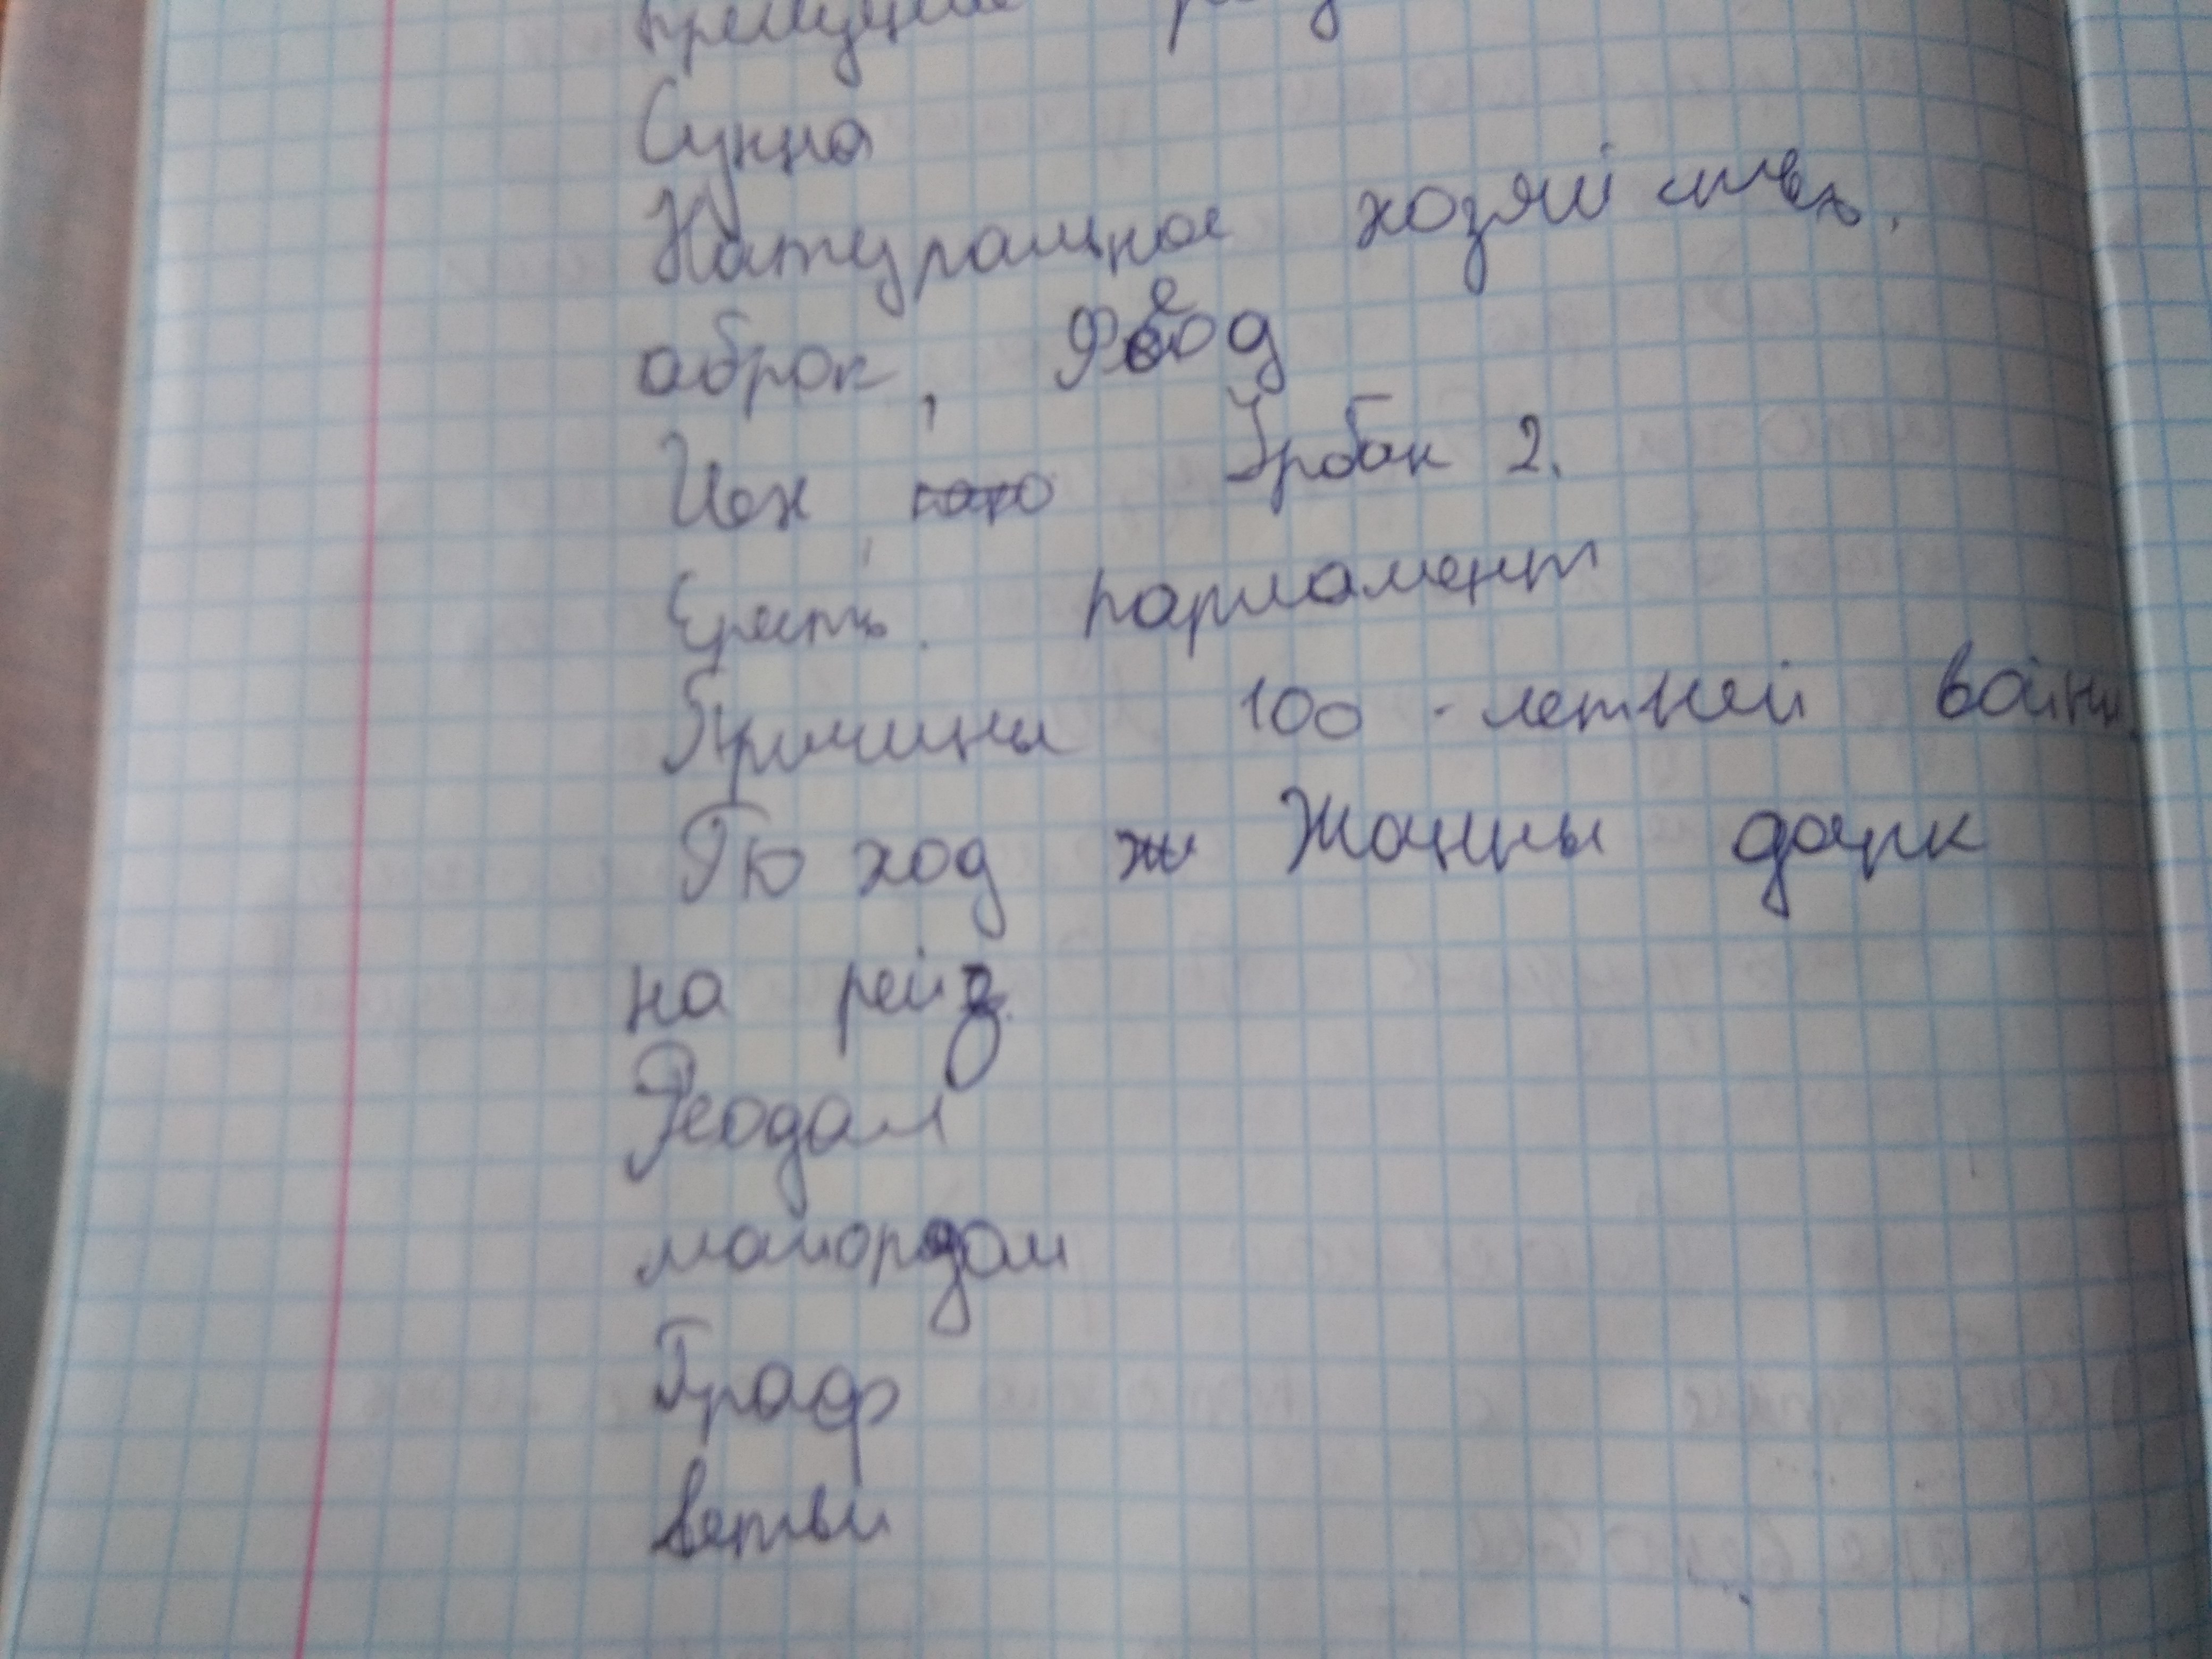 Сунна
Натуральное хозяйство.
оброк, Феод
Цех, Урбан 2.
Ересть. парламент
Причины 100-летней войны.
Поход Жанны дарк
на рейз
Феодал
майордом
Граф
ветви